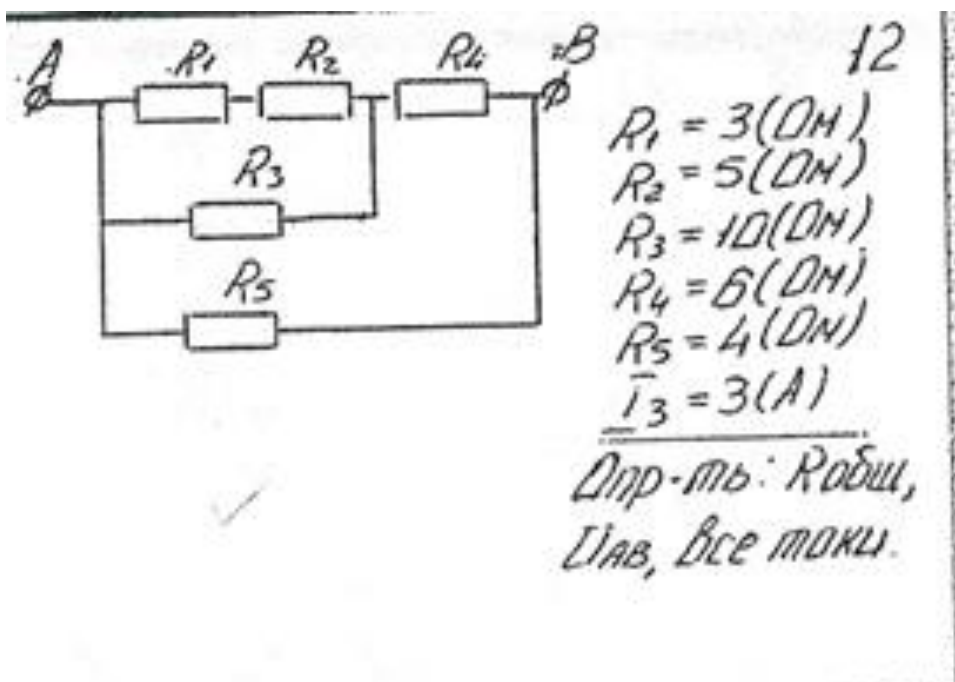 12
A R1 R2 R4 B
R3
R5
R1 = 3(Ом)
R2 = 5(Ом)
R3 = 10(Ом)
R4 = 6(Ом)
R5 = 4(Ом)
I3 = 3(А)
Опр-ть: Rобщ,
UAB, все токи.